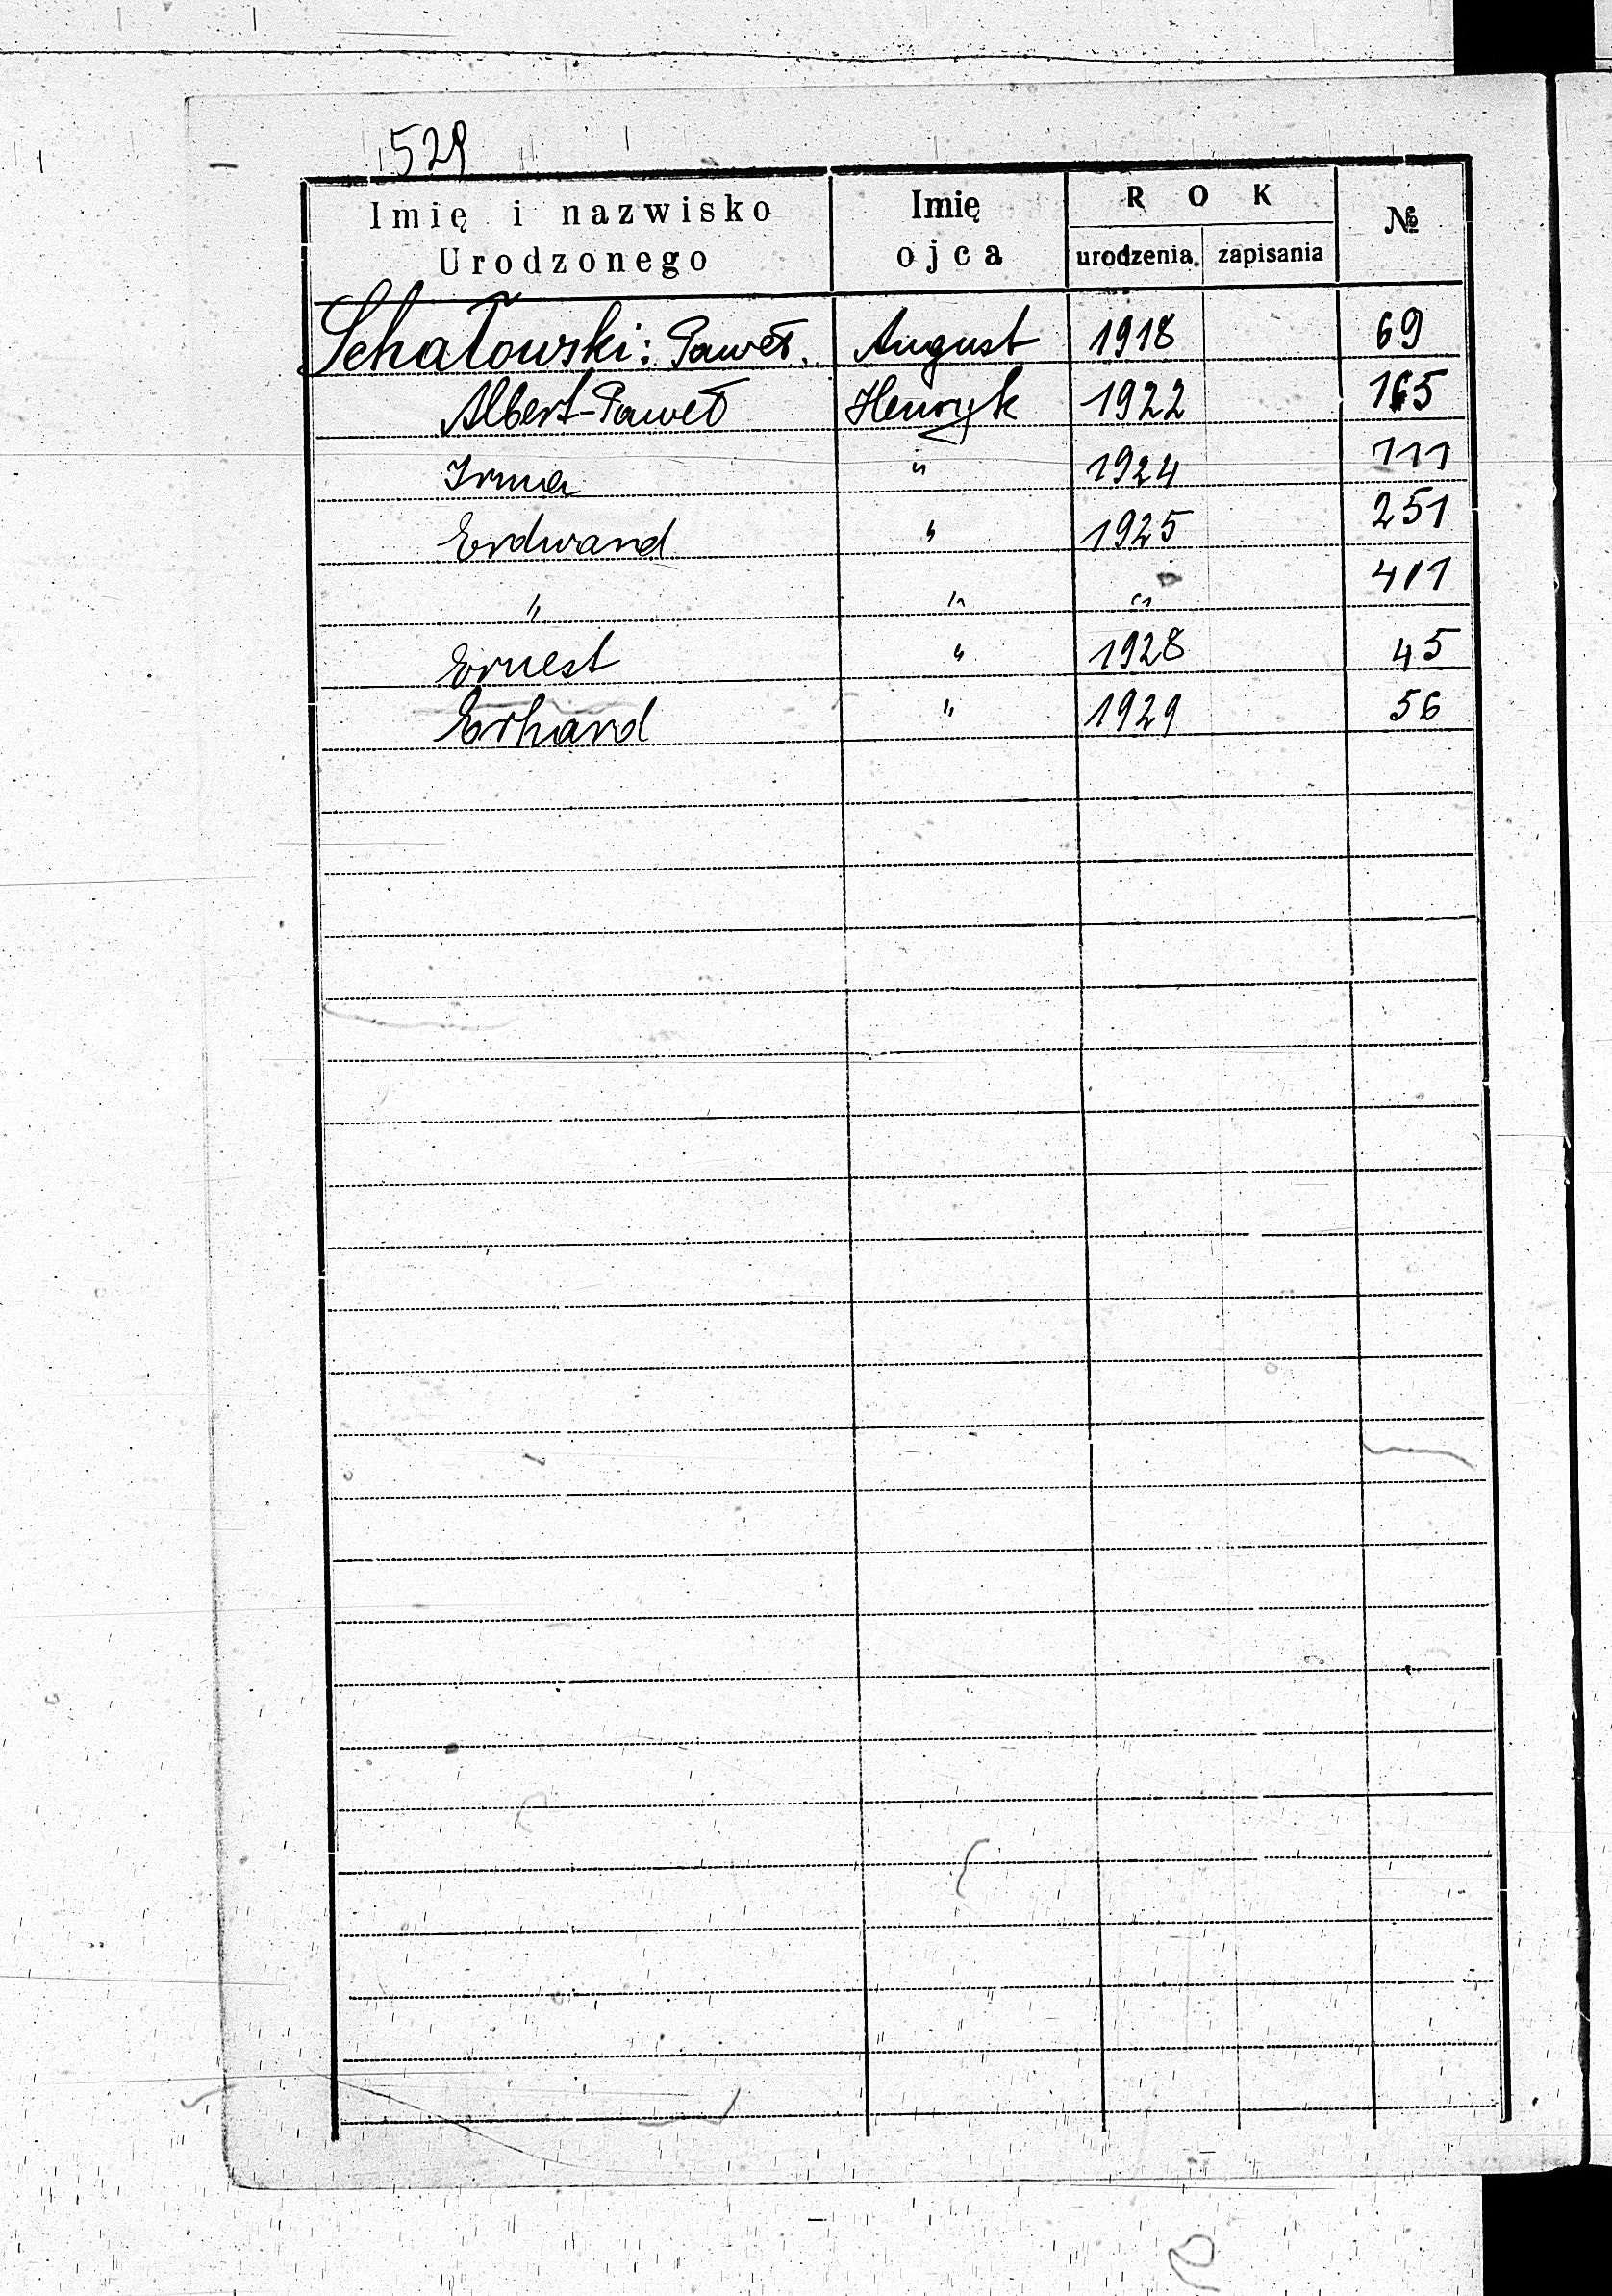 529
Imię i nazwisko Urodzonego | Imię ojca | ROK urodzenia. | zapisania | №
Schałowski: Paweł. | August | 1918 | | 69
Albert-Paweł | Henryk | 1922 | | 165
Irma | " | 1924 | | 111
Erdwand | " | 1925 | | 251
" | " | " | | 411
Ernest | " | 1928 | | 45
Erhard | " | 1929 | | 56